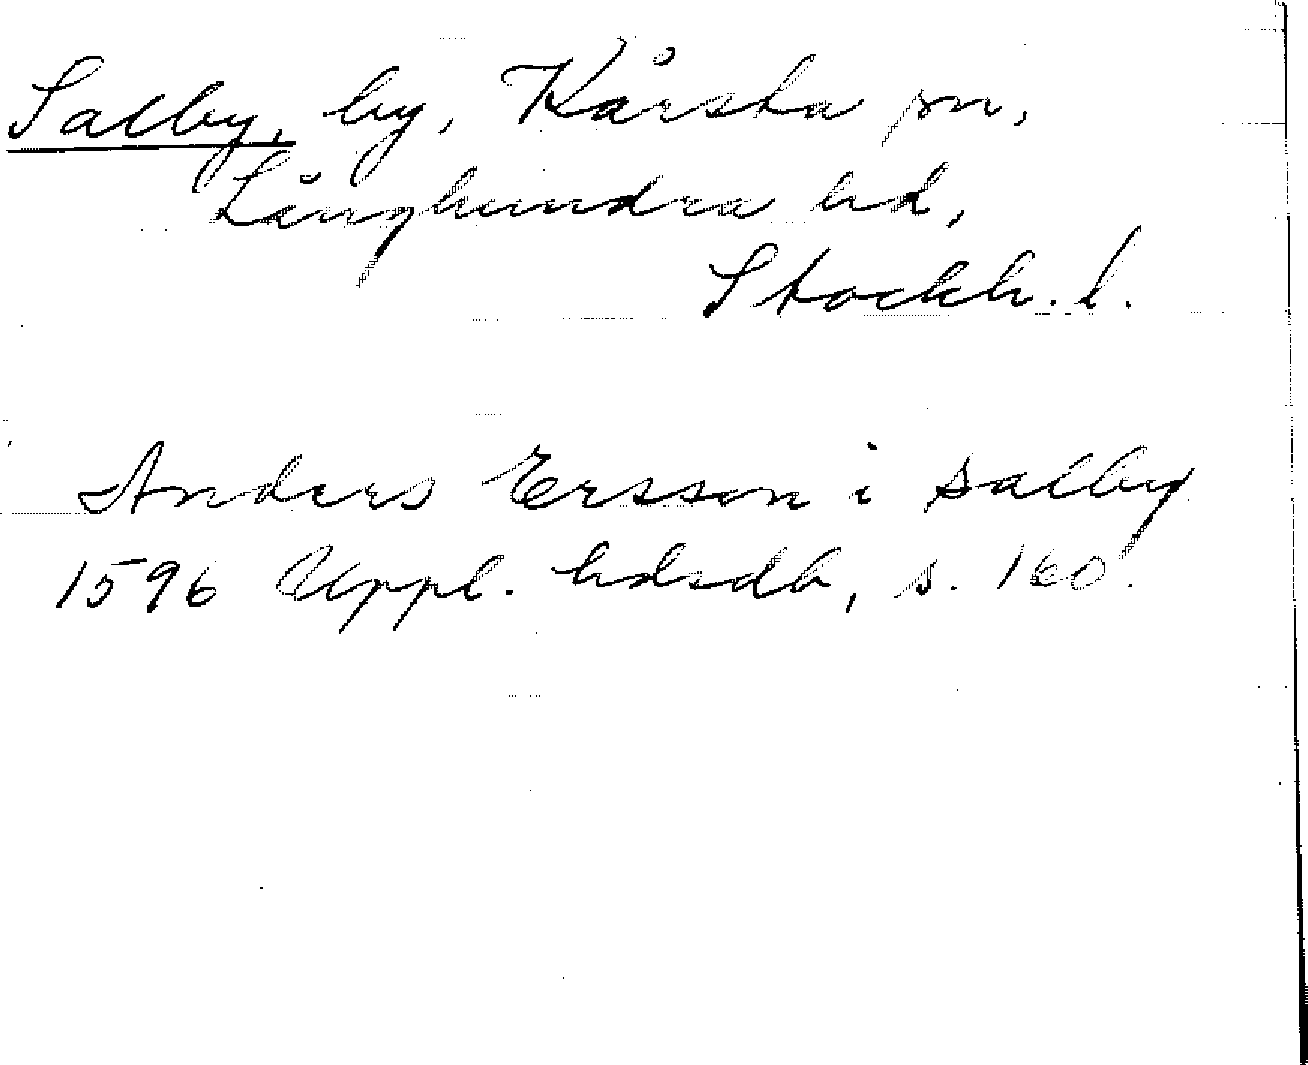 Salby, by, Kårsta sn,
Långhundra hd,
Stockh. l.
Anders Ersson i Salby
1596 Uppl. hdsdb, s. 160.